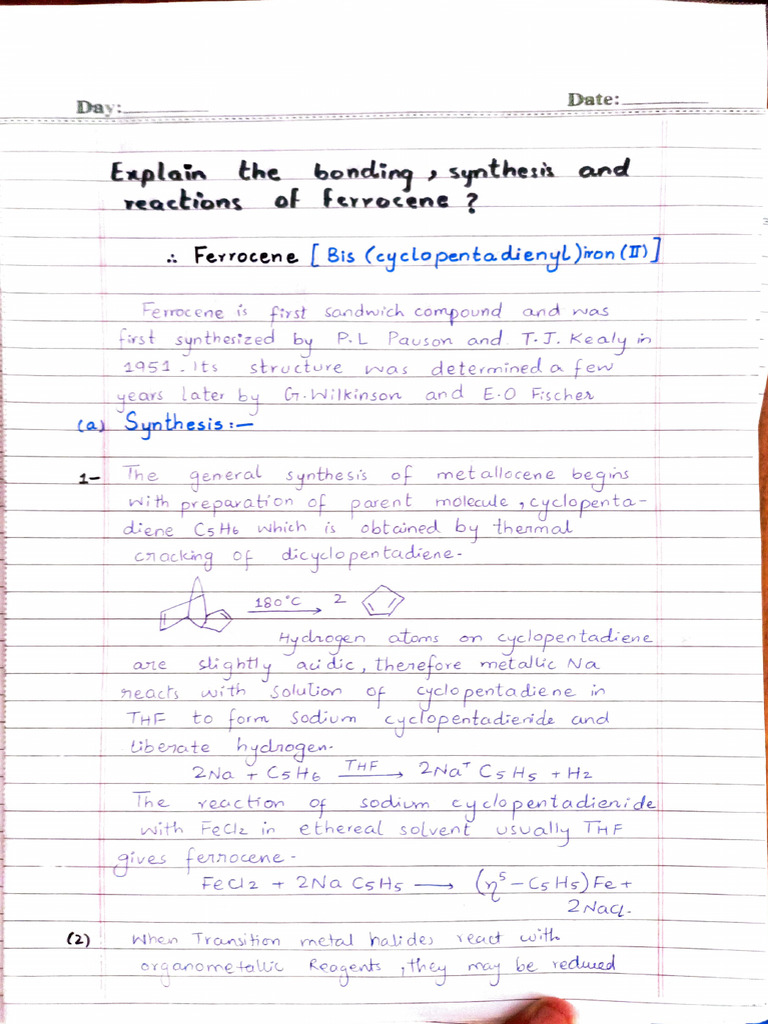 Day:
Date:
Explain the bonding, synthesis and
reactions of ferrocene?
∴ Ferrocene [Bis (cyclopentadienyl)iron (II)]
Ferrocene is first sandwich compound and was
first synthesized by P.L Pauson and T.J. Kealy in
1951. Its structure was determined a few
years later by G.Wilkinson and E.O Fischer
(a) Synthesis:-
1- The general synthesis of metallocene begins
with preparation of parent molecule, cyclopenta-
diene C5H6 which is obtained by thermal
cracking of dicyclopentadiene.
180°C 2
Hydrogen atoms on cyclopentadiene
are slightly acidic, therefore metallic Na
reacts with solution of cyclopentadiene in
THF to form sodium cyclopentadienide and
liberate hydrogen.
2Na + C5H6 THF⟶ 2Na⁺ C5H5 + H2
The reaction of sodium cyclopentadienide
with FeCl2 in ethereal solvent usually THF
gives ferrocene.
FeCl2 + 2Na C5H5 ⟶ (η⁵-C5H5)Fe+
2NaCl.
(2) When Transition metal halides react with
organometallic Reagents, they may be reduced